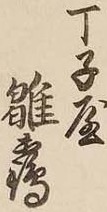 丁子屋
雛鶴